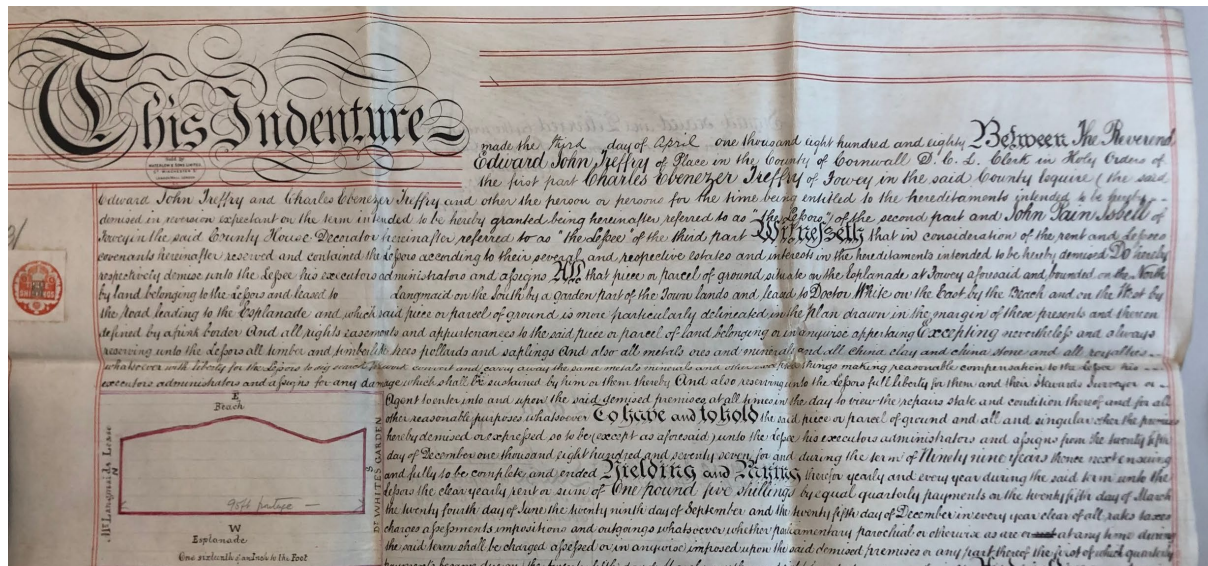 This Indenture
made the third day of April one thousand eight hundred and eighty Between The Reverend
Edward John Treffry of Place in the County of Cornwall D. C. L. Clerk in Holy Orders of
the first part Charles Ebenezer Treffry of Fowey in the said County Esquire (the said
Edward John Treffry and Charles Ebenezer Treffry and other the person or persons for the time being entitled to the hereditaments intended to be hereby
demised in reversion expectant on the term intended to be hereby granted being hereinafter referred to as "the Lessors") of the second part and John Isbell of
Fowey in the said County House Decorator hereinafter referred to as "the Lessee" of the third part Witnesseth that in consideration of the rent and Lessees
covenants hereinafter reserved and contained the Lessors according to their several and respective estates and interests in the hereditaments intended to be hereby demised Do hereby
respectively demise unto the Lessee his executors administrators and assigns All that piece or parcel of ground situate on the Esplanade at Fowey aforesaid and bounded on the North
by land belonging to the Lessors and leased to Langmaid on the South by a garden part of the Town lands and leased to Doctor White on the East by the Beach and on the West by
the road leading to the Esplanade and which said piece or parcel of ground is more particularly delineated in the plan drawn in the margin of these presents and thereon
defined by a pink border And all rights easements and appurtenances to the said piece or parcel of land belonging or in anywise appertaining Excepting nevertheless and always
reserving unto the Lessors all timber and timberlike trees pollards and saplings And also all metals ores and minerals and all china clay and china stone and all royalties
whatsoever with liberty for the Lessors to dig search for and convert and carry away the same metals minerals and other things making reasonable compensation to the Lessee his
executors administrators and assigns for any damage which shall be sustained by him or them thereby And also reserving unto the Lessors full liberty for them and their Stewards Surveyor or
Agent to enter into and upon the said demised premises at all times in the day to view the repairs state and condition thereof and for all
other reasonable purposes whatsoever To have and to hold the said piece or parcel of ground and all and singular other the premises
hereby demised or expressed so to be (except as aforesaid) unto the Lessee his executors administrators and assigns from the twenty fifth
day of December one thousand eight hundred and seventy seven for and during the term of Ninety nine years thence next ensuing
and fully to be complete and ended Yielding and Paying therefor yearly and every year during the said term unto the
Lessors the clear yearly rent or sum of One pound five shillings by equal quarterly payments on the twenty fifth day of March
the twenty fourth day of June the twenty ninth day of September and the twenty fifth day of December in every year clear of all rates taxes
charges assessments impositions and outgoings whatsoever whether parliamentary parochial or otherwise as are or at any time during
the said term shall be charged assessed or in anywise imposed upon the said demised premises or any part thereof the first of which quarterly
E
Beach
Mr Langmaids Lease
N
S
Dr WHITES GARDEN
95ft
W
Esplanade
One sixteenth of an Inch to the Foot